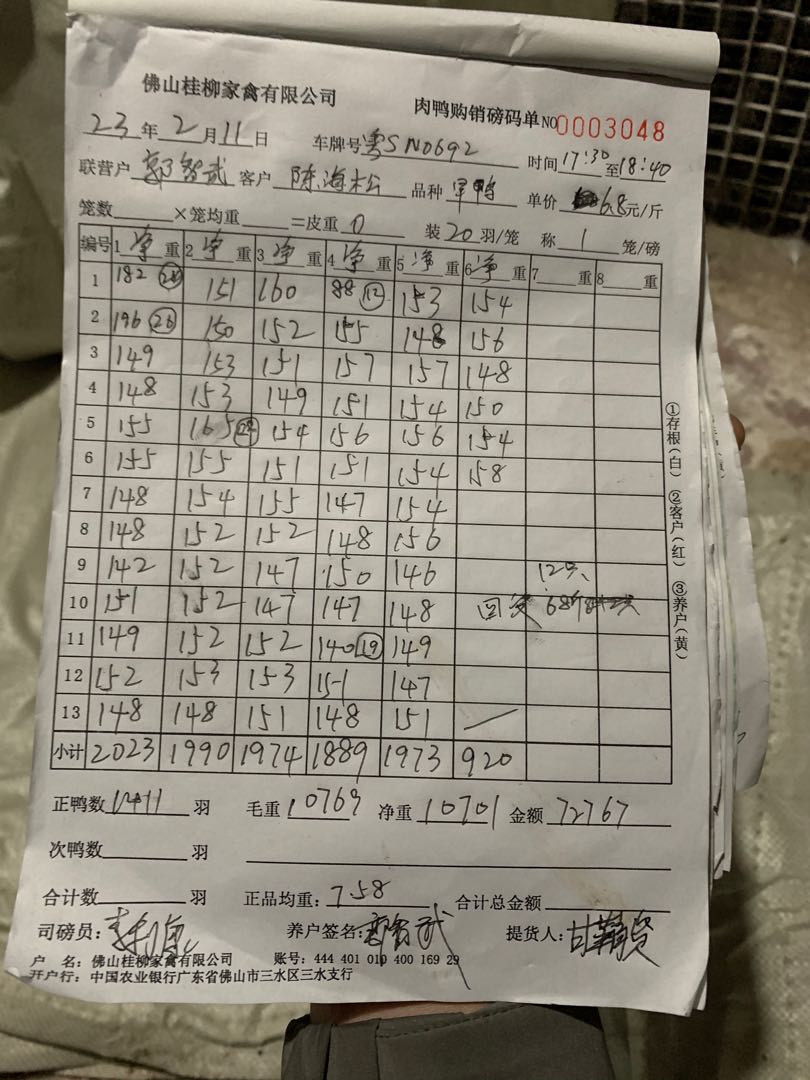 佛山桂柳家禽有限公司 肉鸭购销磅码单 NO0003048
23年2月11日 车牌号粤SN0692 时间17:30至18:40
联营户 郭智武 客户 陈海松 品种 单价 6.8元/斤
笼数 ×笼均重 =皮重 0 装20羽/笼 称 1 笼/磅
编号 1净重 2净重 3净重 4净重 5净重 6净重 7 重 8 重
1 182 151 160 88 (12) 153 154
2 196 (26) 150 152 155 148 156
3 149 153 151 157 157 148
4 148 153 149 151 154 150
5 155 165 154 156 156 154
6 155 155 151 151 154 158
7 148 154 155 147 154
8 148 152 152 148 156
9 142 152 147 150 146 12只
10 151 152 147 147 148 68斤
11 149 152 152 140 (19) 149
12 152 153 153 151 147
13 148 148 151 148 151
小计 2023 1990 1974 1889 1973 920
正鸭数 1411 羽 毛重 10769 净重 10701 金额 72767
次鸭数 羽
合计数 羽 正品均重: 7.58 合计总金额
司磅员: 养户签名: 郭智武 提货人:
户 名: 佛山桂柳家禽有限公司 账号: 444 401 010 400 169 29
开户行: 中国农业银行广东省佛山市三水区三水支行
①存根(白) ②客户(红) ③养户(黄)